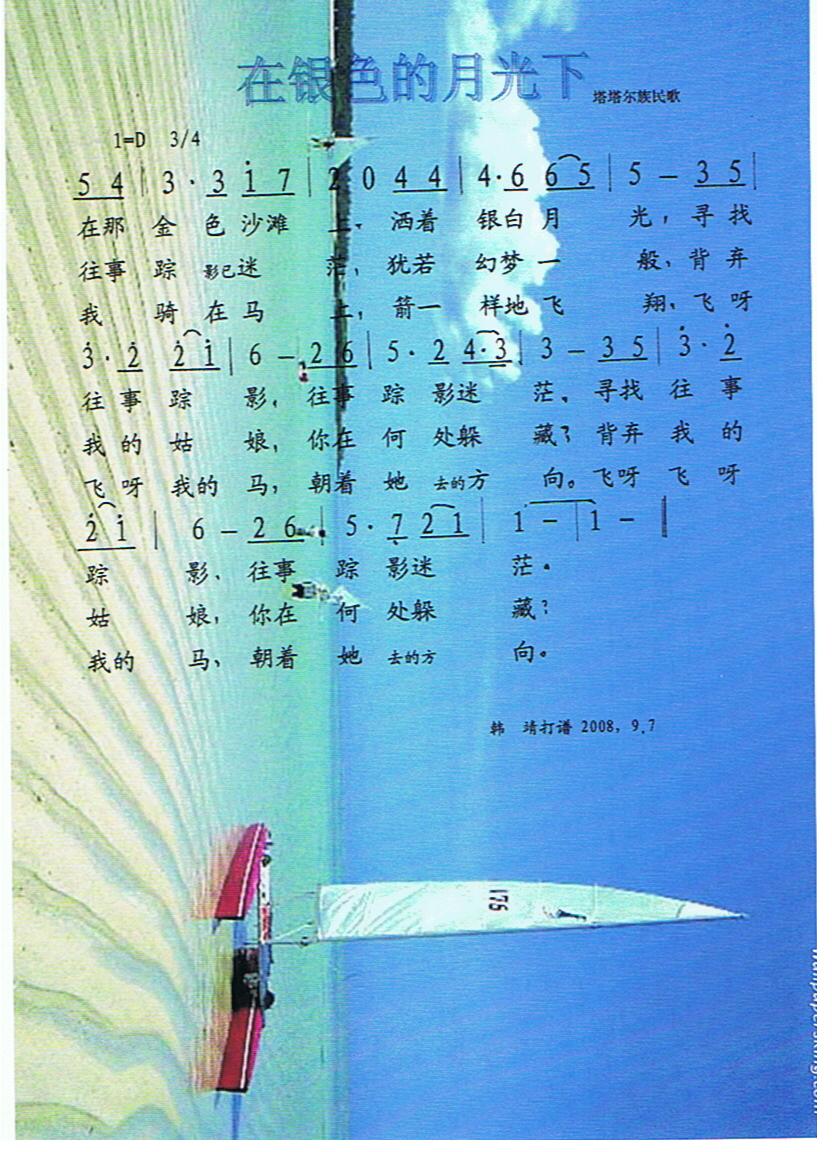 在银色的月光下
塔塔尔族民歌
1=D 3/4
5 4 | 3 · 3 i 7 | 2 0 4 4 | 4 · 6 6 5 | 5 — 3 5 |
在那 金 色 沙滩 上, 洒着 银白 月 光, 寻 找
往事 踪 影已迷 茫, 犹若 幻梦 一 般, 背 弃
我 骑 在 马 上, 箭一 样地 飞 翔, 飞 呀
3̇ · 2̇ 2̇ i | 6 — 2 6 | 5 · 2 4 · 3 | 3 — 3 5 | 3̇ · 2̇
往 事 踪 影, 往事 踪 影迷 茫。寻找 往 事
我 的 姑 娘, 你在 何 处躲 藏? 背弃 我 的
飞 呀 我的 马, 朝着 她 去的方 向。飞呀 飞 呀
2̇ i | 6 — 2 6 | 5 · 7̣ 2 1 | 1 — | 1 — ‖
踪 影、往事 踪 影迷 茫。
姑 娘, 你在 何 处躲 藏?
我的 马, 朝着 她 去的方 向。
韩 靖打谱 2008, 9.7
175